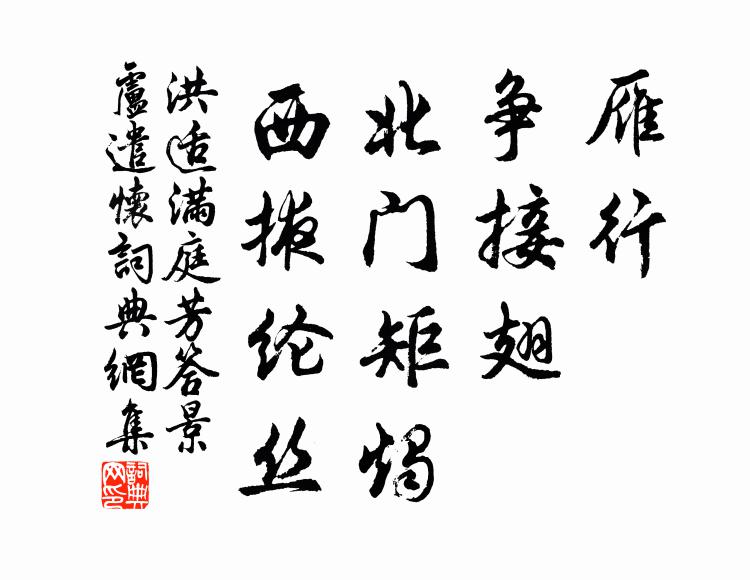 雁行
争接翅
北门矩烛
西掖纶丝
洪适满庭芳答景
盧遣懷詞典網集
詞典网印